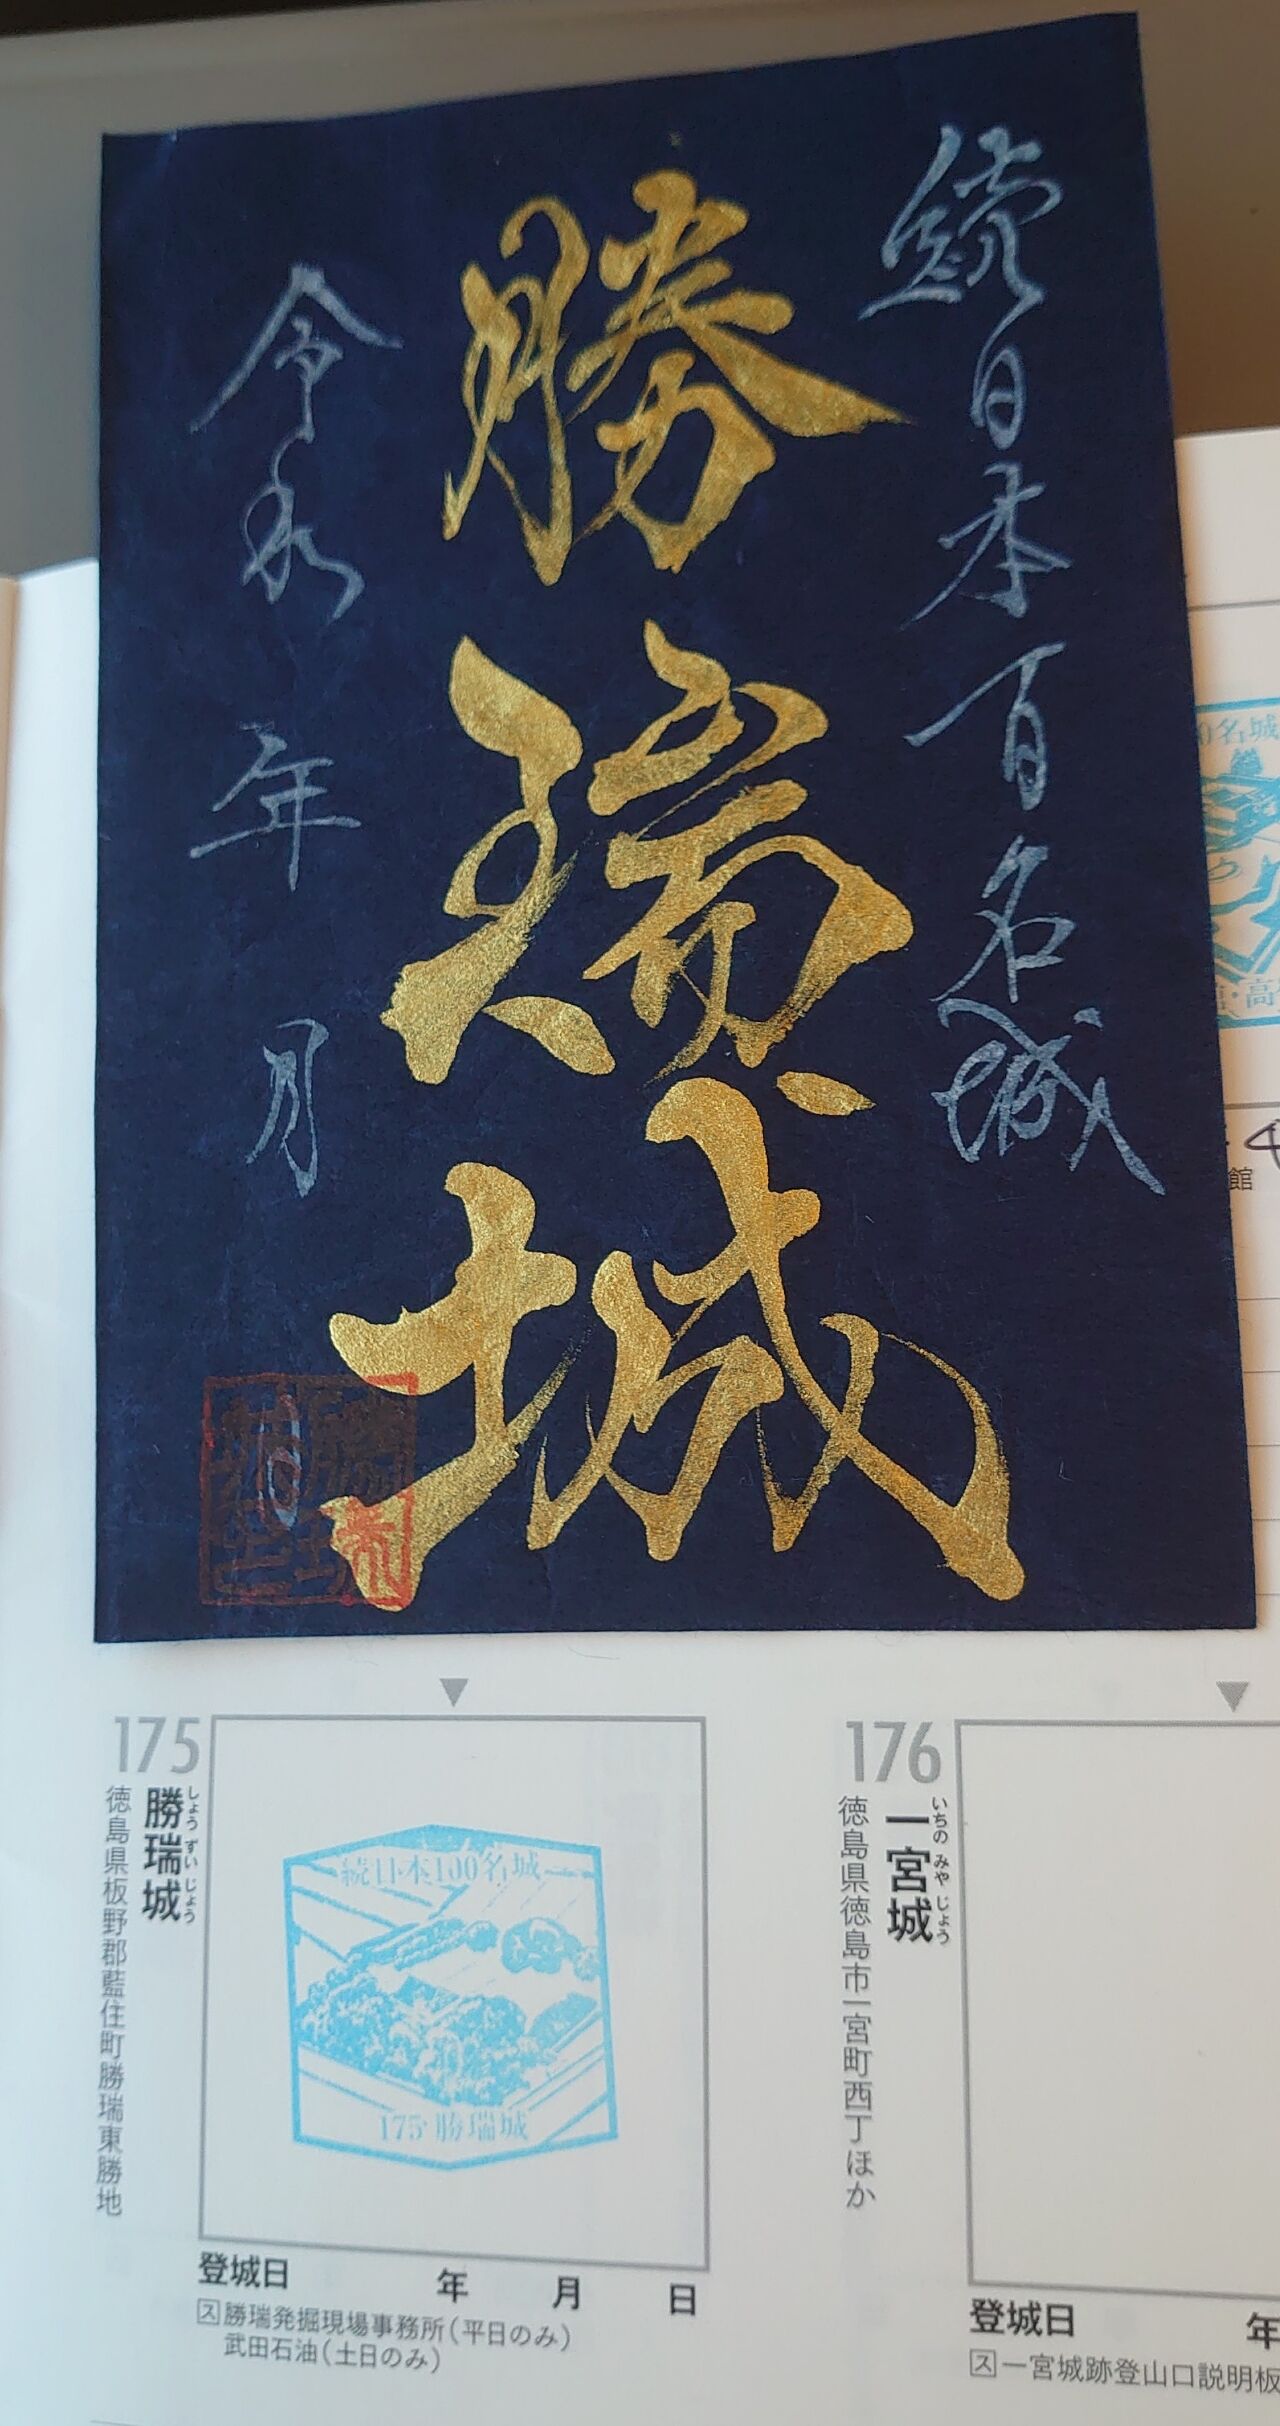 続日本百名城
勝瑞城
令和 年 月 日
0名城
館
175
しょうずいじょう
勝瑞城
徳島県板野郡藍住町勝瑞東勝地
続日本100名城
175 勝瑞城
登城日 年 月 日
ス 勝瑞発掘現場事務所(平日のみ)
武田石油(土日のみ)
176
いちのみやじょう
一宮城
徳島県徳島市一宮町西丁ほか
登城日 年
ス 一宮城跡登山口説明板